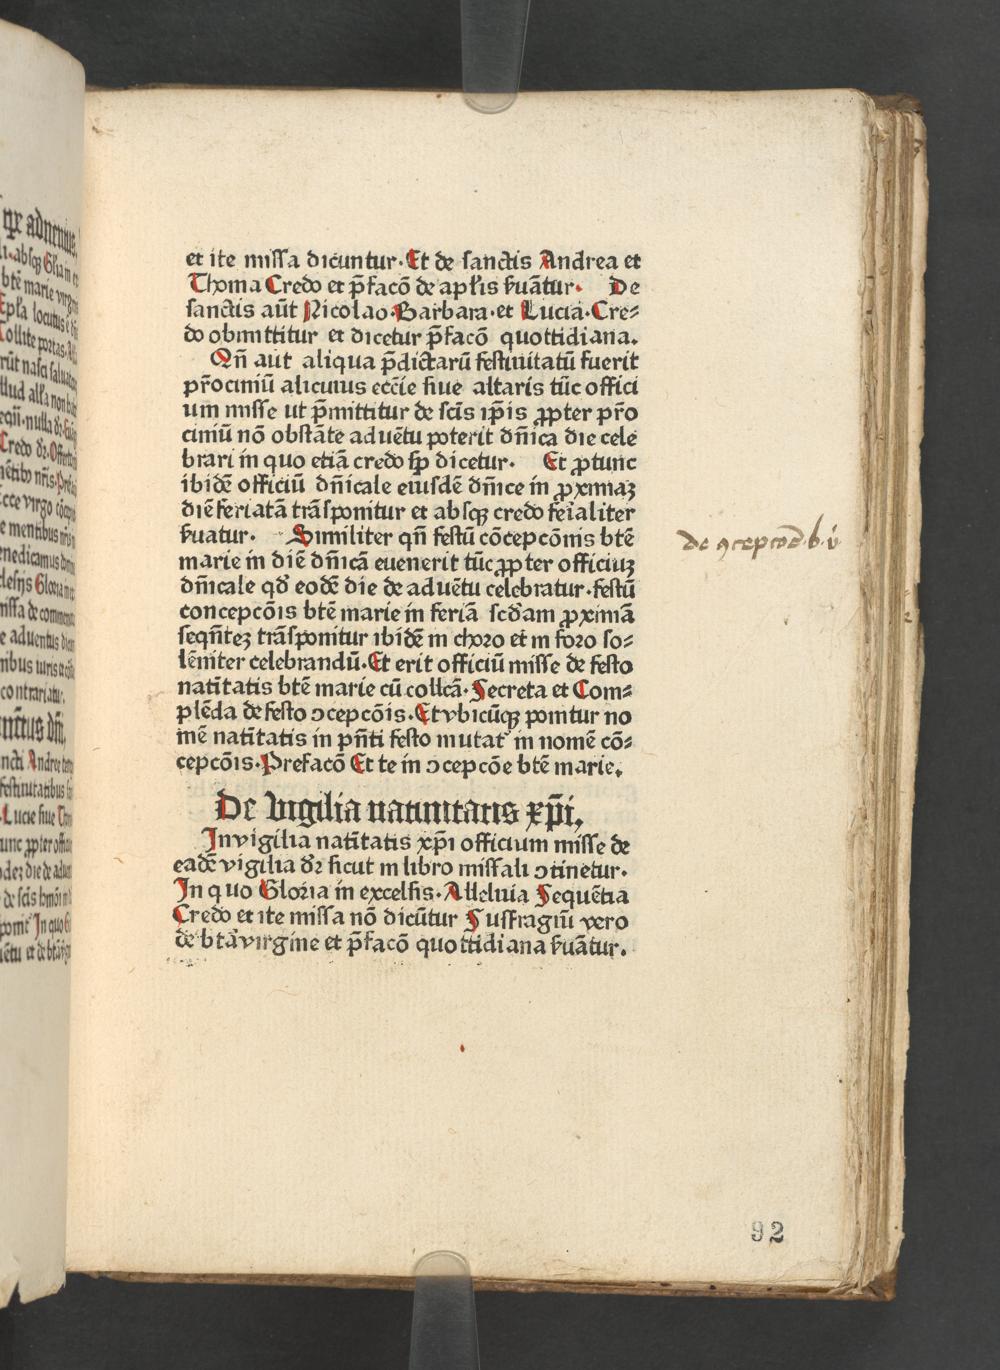 et ite missa dicuntur. Et de sanctis Andrea et
Thoma Credo et p̄facō de aplis ẜuātur. De
sanctis aūt Nicolao. Barbara. et Lucia. Cre⸗
do obmittitur et dicetur p̄facō quottidiana.
Qn̄ aūt aliqua p̄dictarū festiuitatū fuerit
pr̄ociniū alicuius eccīe siue altaris tūc offici
um misse ut p̄mittitur de scīs ip̄is ꝓpter pr̄o
ciniū nō obstāte aduētu poterit dn̄ica die cele
brari in quo etiā credo sꝑ dicetur. Et ꝓtunc
ibidē officiū dn̄icale eiusdē dn̄ice in ꝓximaꝫ
diē feriatā trāsponitur et absqꝫ credo fēialiter
ẜuatur. Similiter qn̄ festū cōcepcōnis btē
marie in diē dn̄icā euenerit tūc ꝓpter officiuꝫ
dn̄icale qđ eodē die de aduētu celebratur. festū
concepcōis btē marie in feriā scđam ꝓximā
seqn̄teꝫ trāsponitur ibidē in choro et in foro so⸗
lēniter celebrandū. Et erit officiū misse de festo
natītatis btē marie cū collcā. Secreta et Com⸗
plēda de festo ɔcepcōis. Et vbicūqꝫ ponitur no
mē natītatis in pn̄ti festo mutat᷑ in nomē cō⸗
cepcōis. Prefacō Et te in ɔcepcōe btē marie.
De Vigilia natiuitatis xp̄i.
In vigilia natītatis xp̄i officium misse de
eadē vigilia dꝛ sicut in libro missali ɔtinetur.
In quo Gloria in excelsis. Alleluia Sequētia
Credo et ite missa nō dicūtur Suffragiū vero
de btā virgine et p̄facō quottidiana ẜuātur.
92